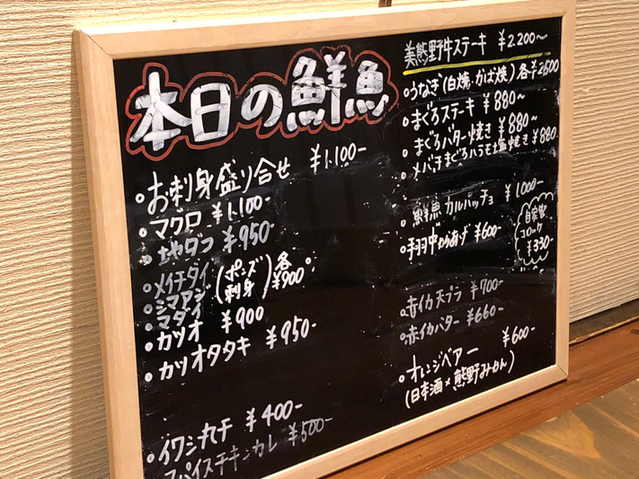 本日の鮮魚
・お刺身盛り合せ ¥1.100-
・マグロ ¥1.100-
・地ダコ ¥950-
・メイチダイ
・シマアジ
・マダイ
(ポンズ
刺身)
各
¥900
・カツオ ¥900
・カツオタタキ ¥950-
・イワシ丸干 ¥400-
スパイスチキンカレ ¥500-
美熊野牛ステーキ ¥2.200~
・うなぎ(白焼・かば焼)各¥2600
・まぐろステーキ ¥880~
・まぐろバター焼き ¥880~
・メバチまぐろハラモ塩焼き ¥880
・鮮魚カルパッチョ ¥1000-
・手羽中からあげ ¥600-
自家製
コロッケ
¥330-
・赤イカ天プラ ¥700-
・赤イカバター ¥660-
・オレンジベアー ¥600-
(日本酒×熊野みかん)